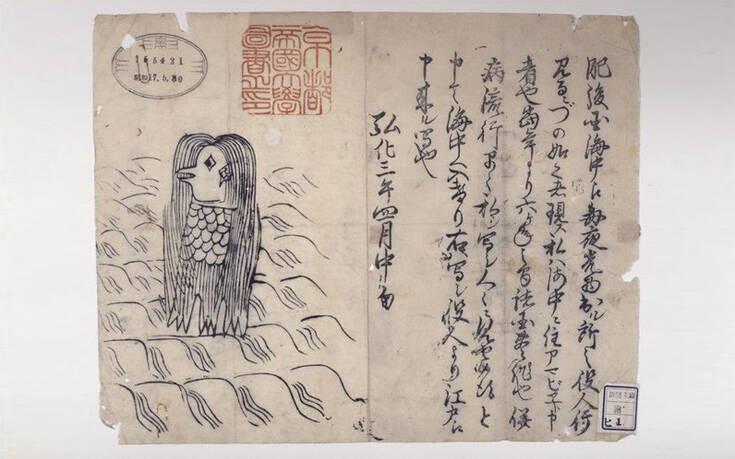 肥後国海中え毎夜光物出ル所之役人行
見るニづの如之者現ス私ハ海中ニ住アマビヱト申
者也当年より六ヶ年之間諸国豊作也併
病流行早々私シ写シ人々ニ見せ候得と
申て海中へ入けり右写シ役人より江戸え
申来ル写也
弘化三年四月中旬
京都
帝國大學
圖書之印
165421
昭和17.5.30
ヒ 1